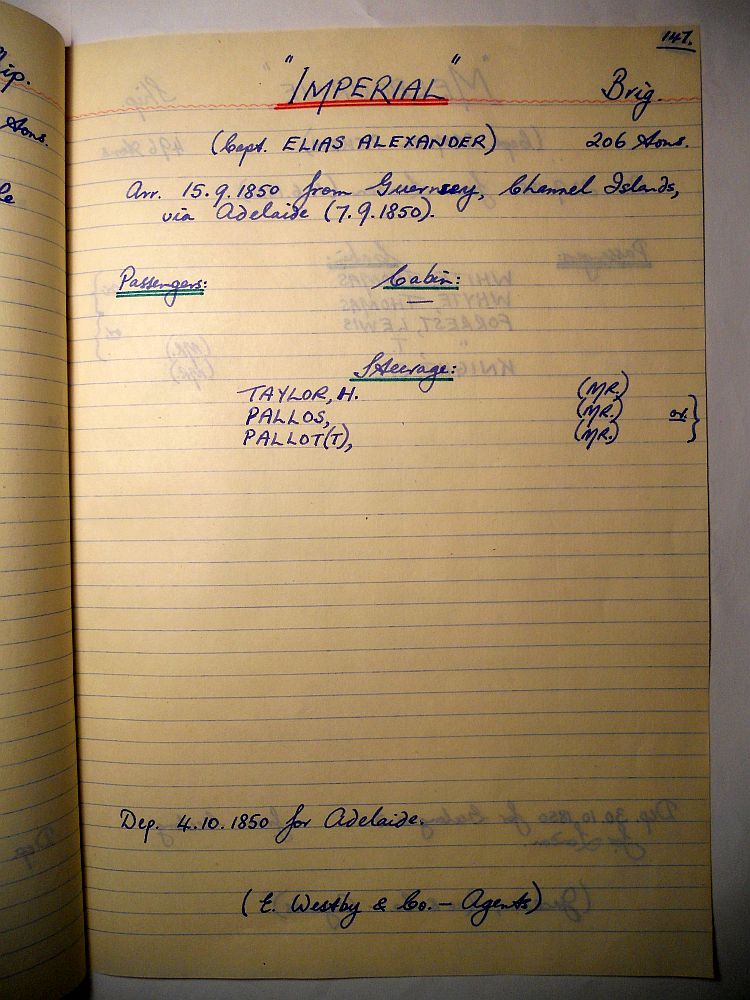 147.
"IMPERIAL" Brig.
(Capt. ELIAS ALEXANDER) 206 tons.
Arr. 15.9.1850 from Guernsey, Channel Islands,
via Adelaide (7.9.1850).
Passengers: Cabin:
—
Steerage:
TAYLOR, H. (MR.)
PALLOS, (MR.) or }
PALLOT(T), (MR.)
Dep. 4.10.1850 for Adelaide.
(E. Westby & Co. — Agents)